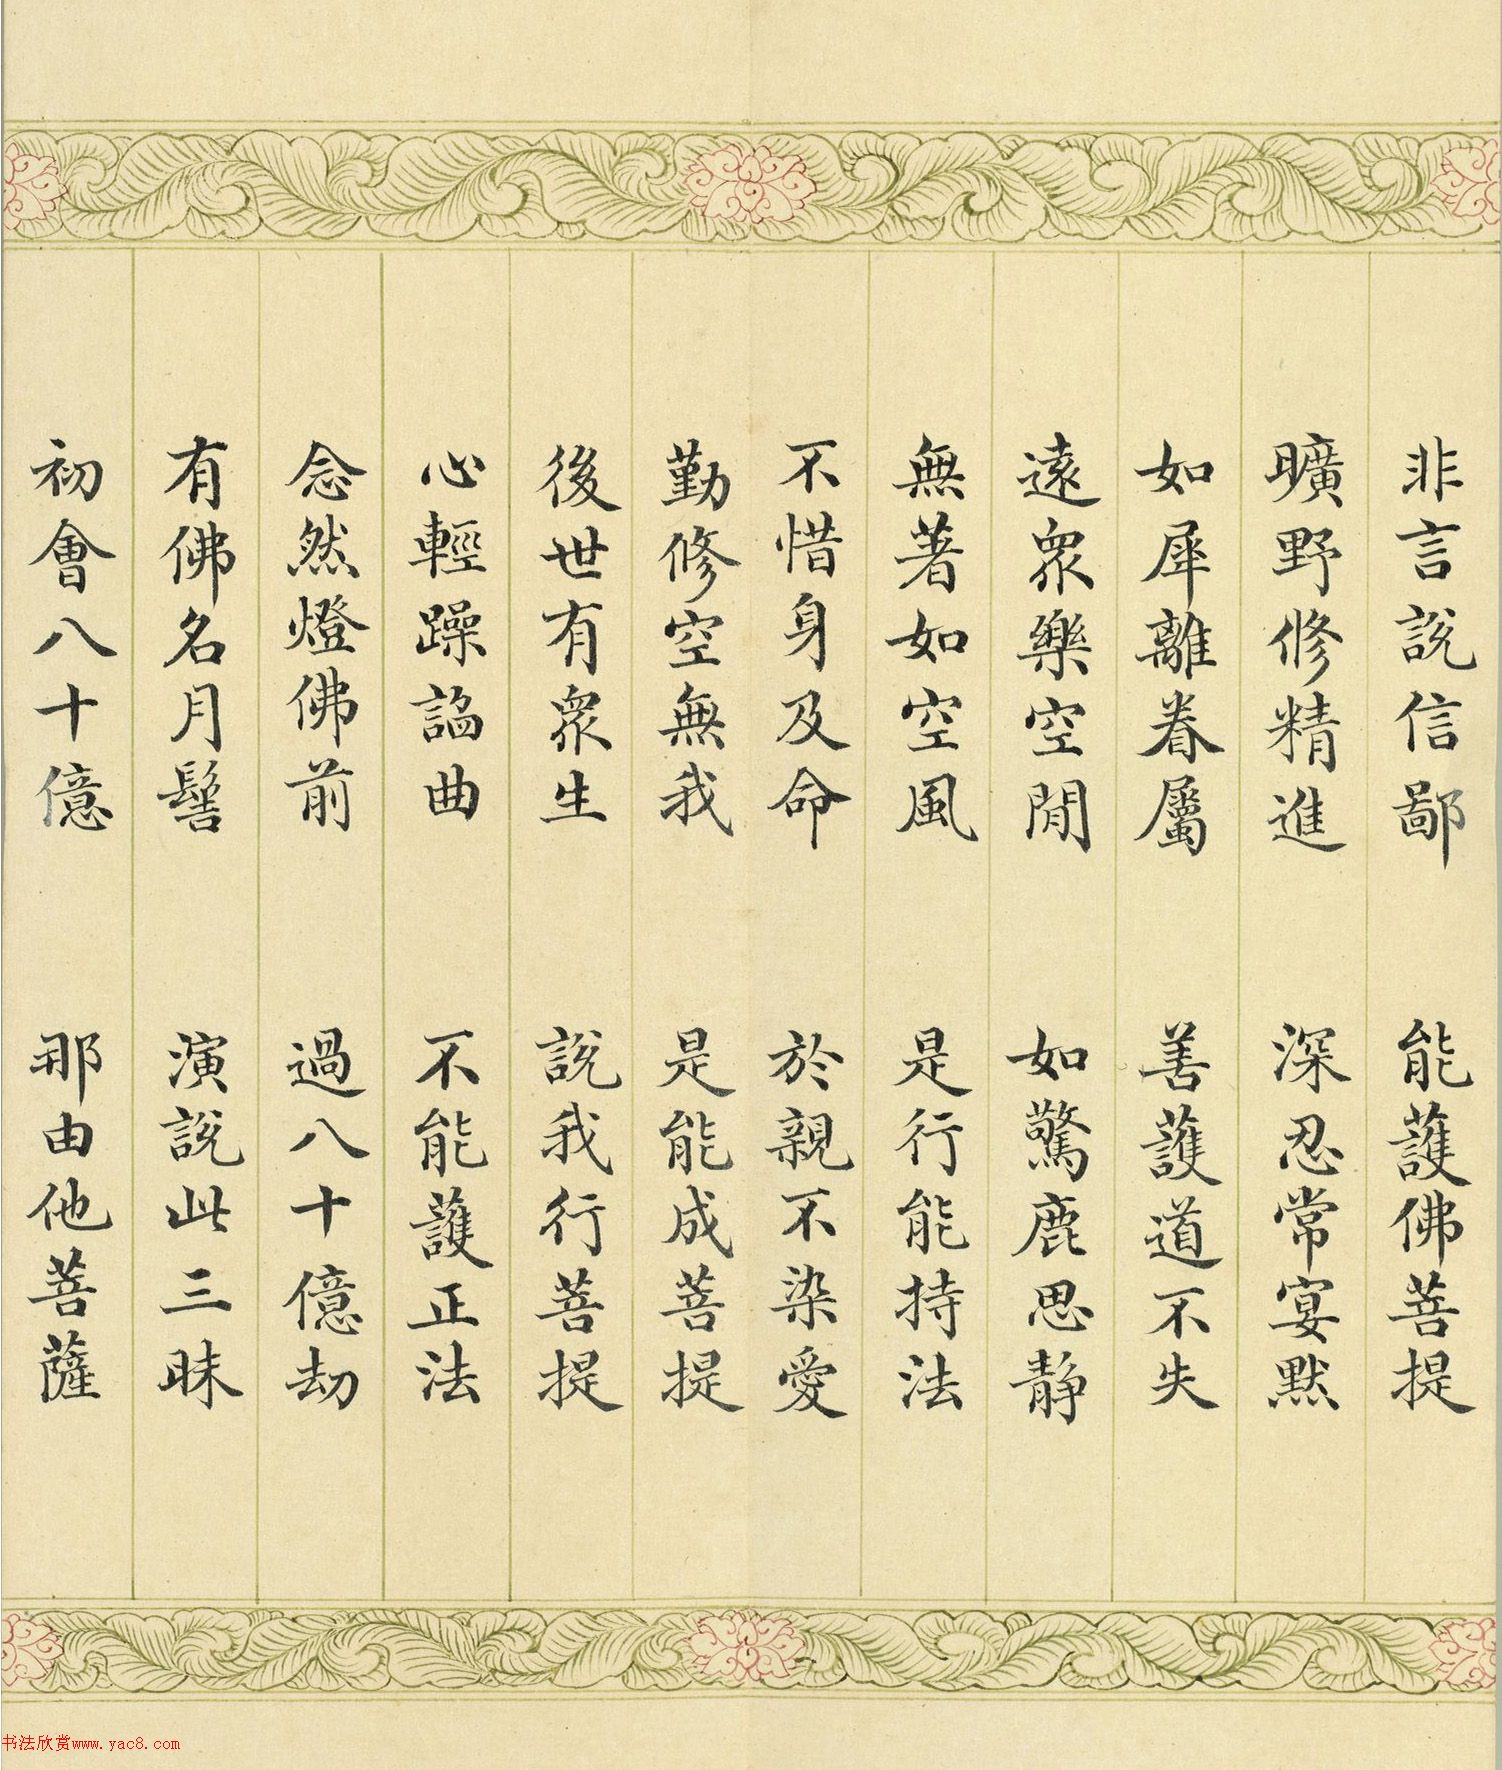 非言說信鄙　能護佛菩提
曠野修精進　深忍常宴默
如犀離眷屬　善護道不失
遠眾樂空閒　如驚鹿思静
無著如空風　是行能持法
不惜身及命　於親不染愛
勤修空無我　是能成菩提
後世有眾生　說我行菩提
心輕躁謟曲　不能護正法
念然燈佛前　過八十億劫
有佛名月髻　演說此三昧
初會八十億　那由他菩薩
书法欣赏www.yac8.com